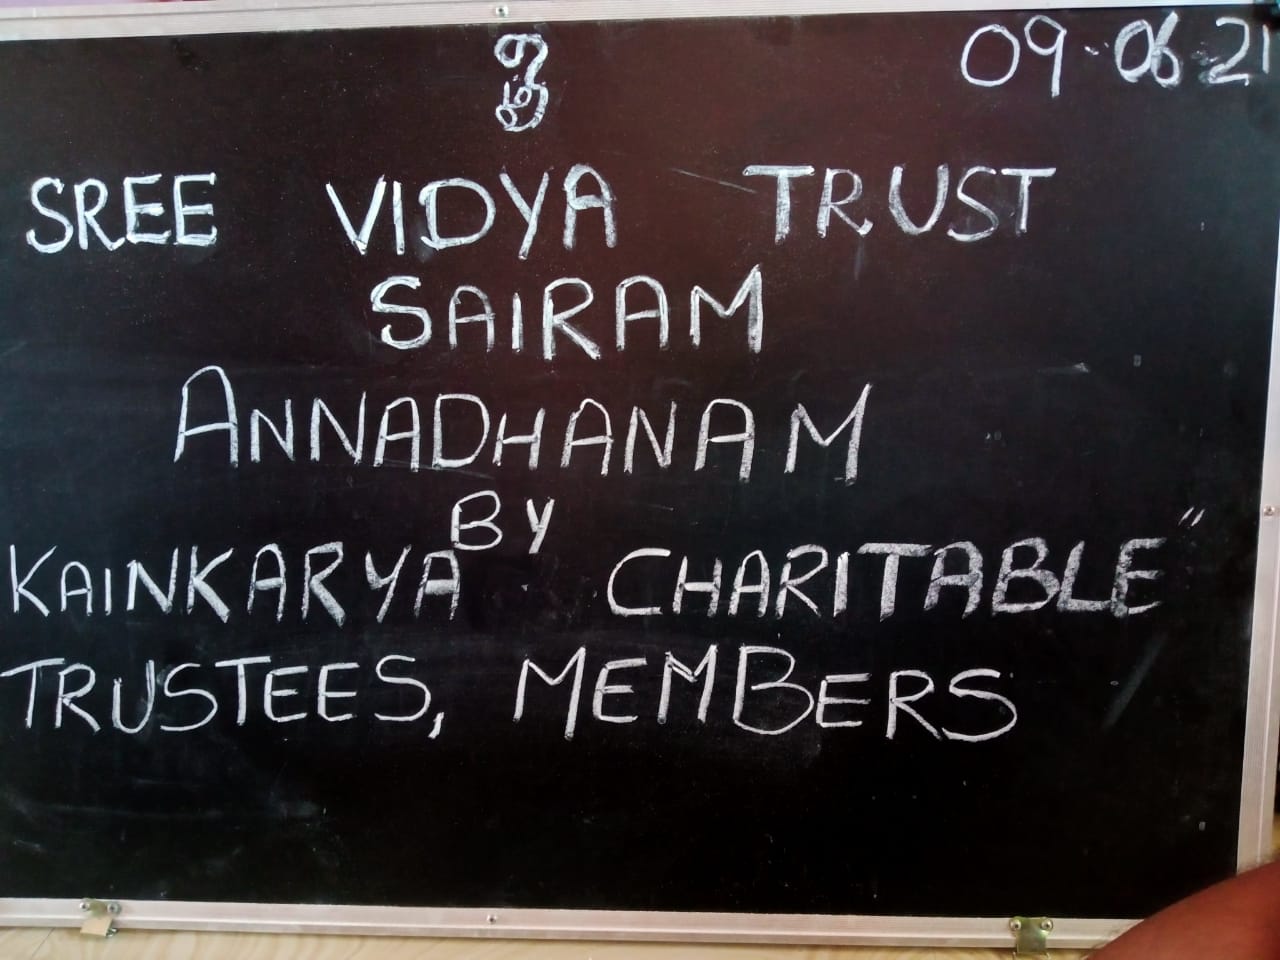 ஸ்ரீ
09-06-21
SREE VIDYA TRUST
SAIRAM
ANNADHANAM
BY
KAINKARYA CHARITABLE"
TRUSTEES, MEMBERS